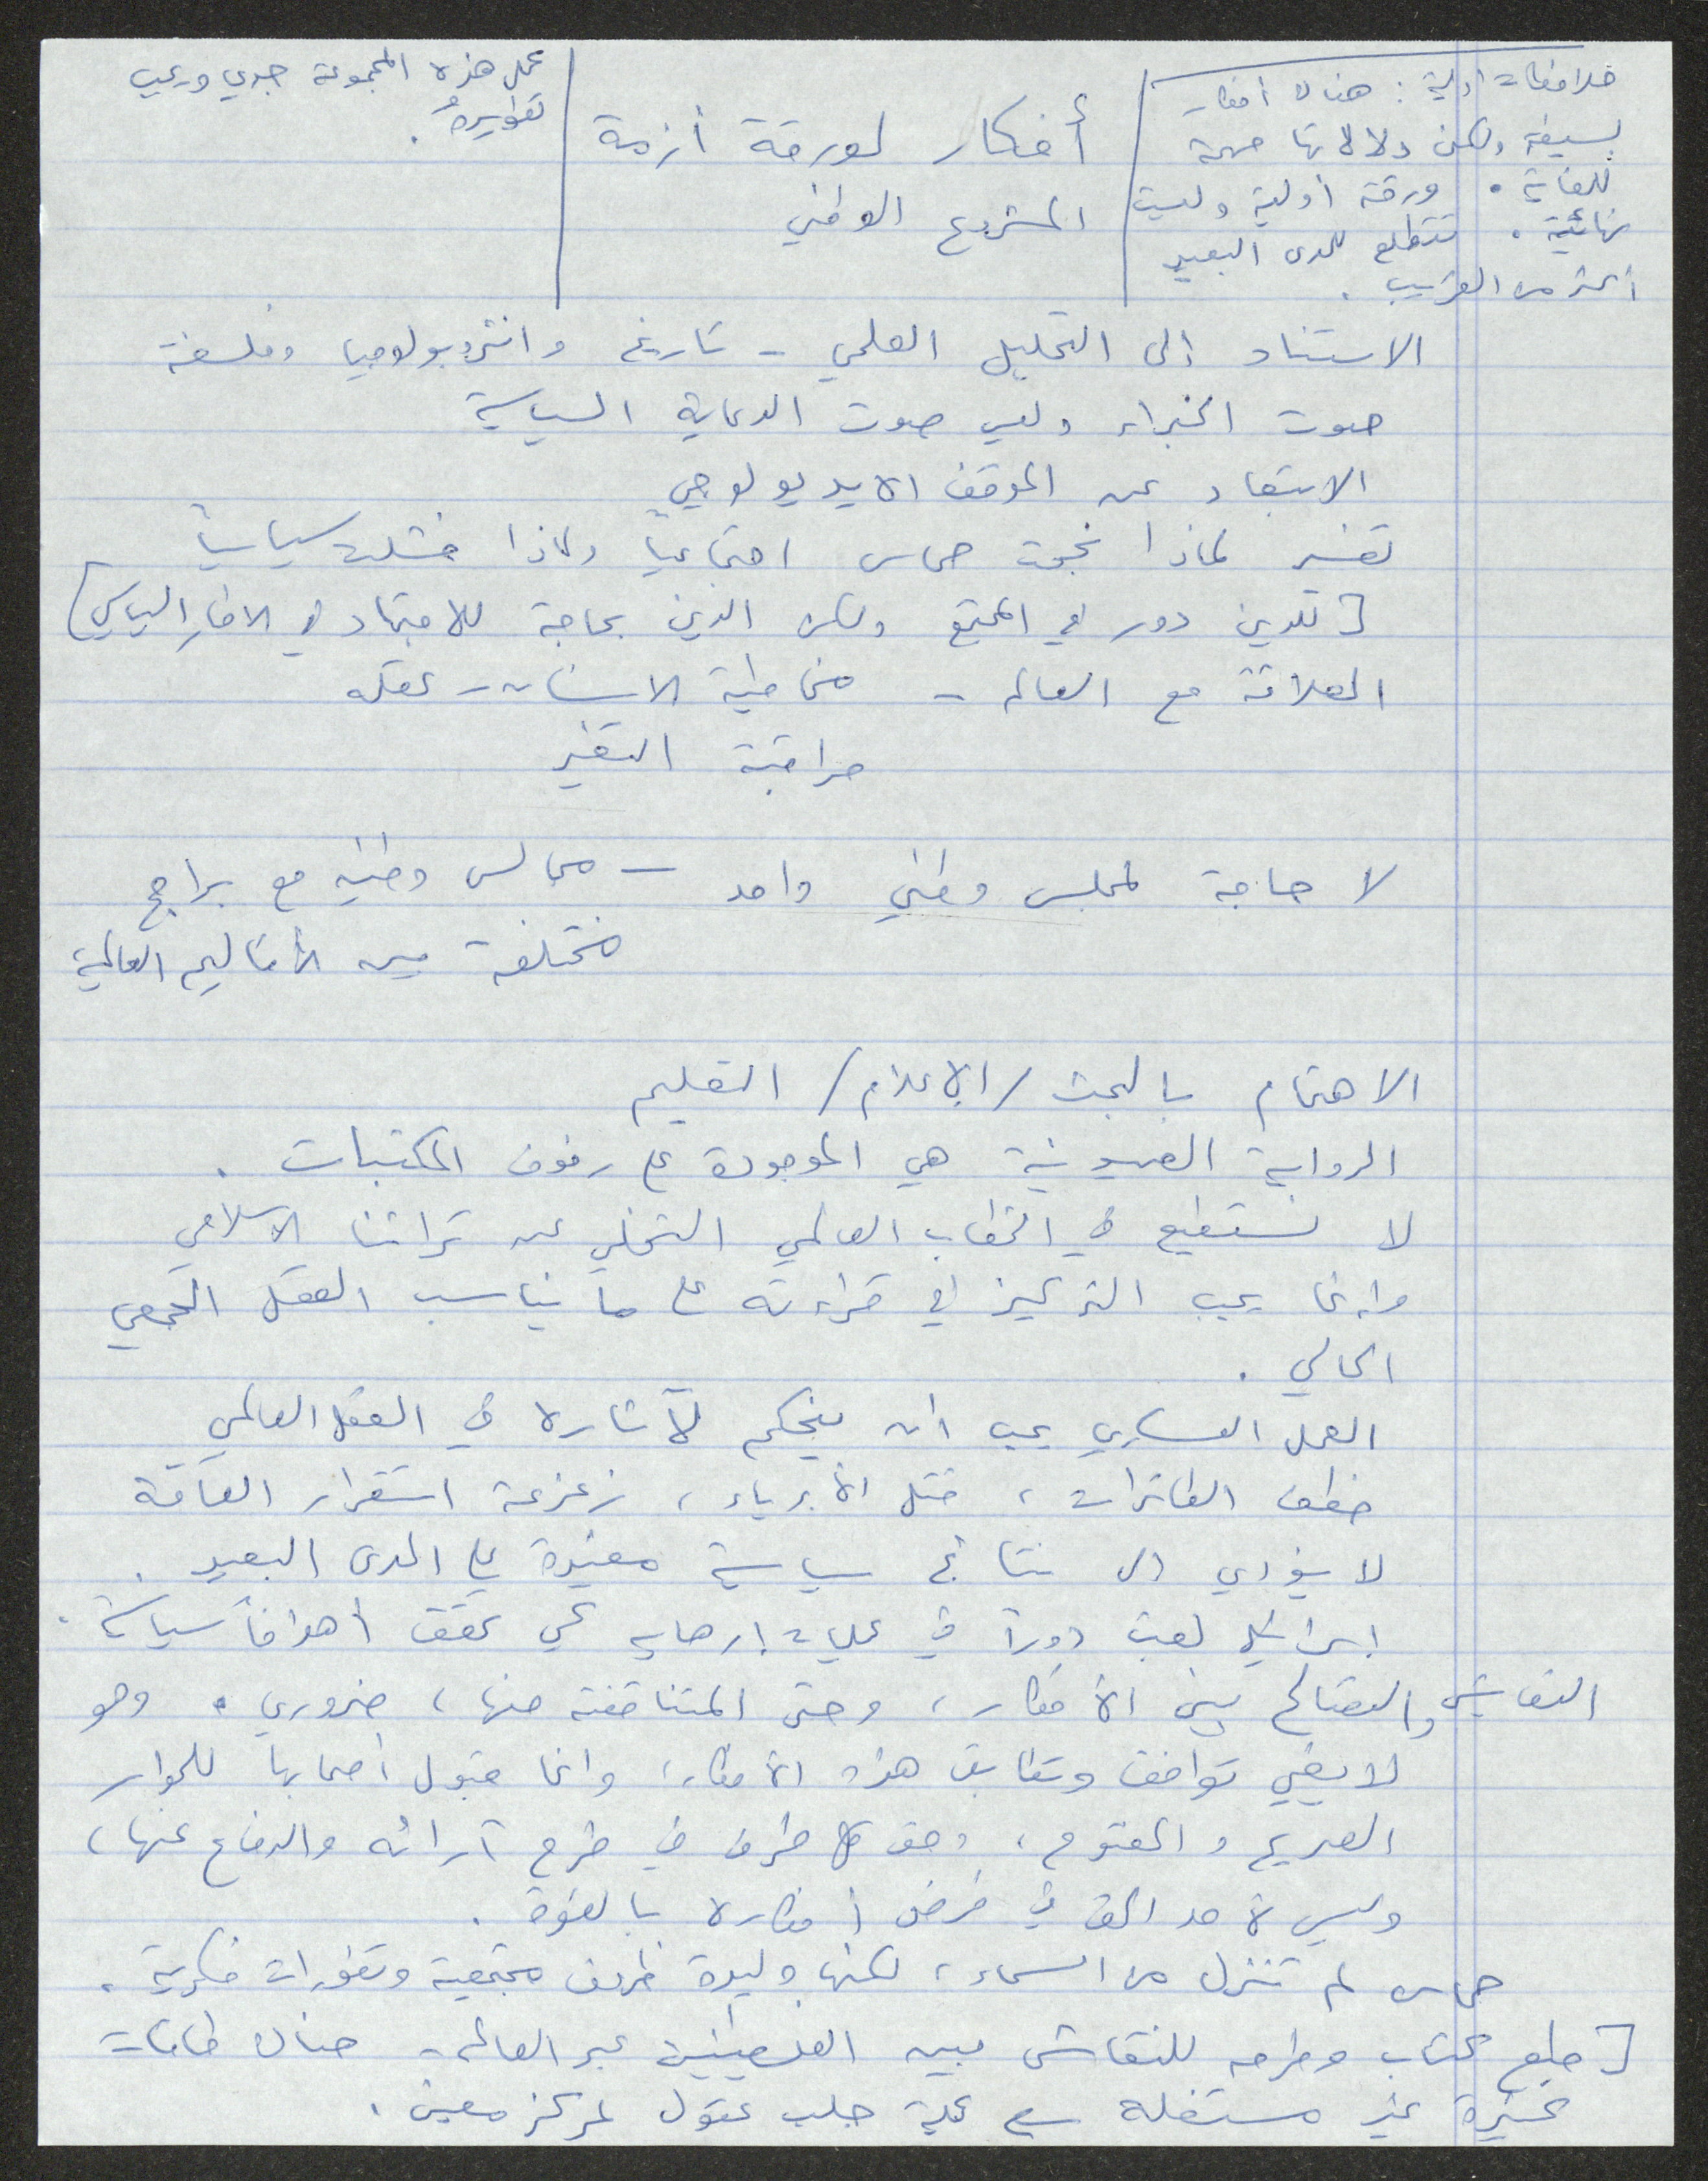 ملاحظات أولية: هناك أفكار
بسيطة ولكن دلالاتها مهمة
للغاية. ورقة أولية وليست
نهائية. تتطلع للمدى البعيد
أكثر من القريب.
أفكار لورقة أزمة
المشروع الوطني
عمل هذه المجموعة جدي ويجب
تطويره.
الاستناد إلى التحليل العلمي - تاريخ وانثروبولوجيا وفلسفة
صوت الخبراء وليس صوت الدعاية السياسية
الابتعاد عن الموقف الايديولوجي
تفسير لماذا نجحت حماس اجتماعياً ولماذا فشلت سياسياً
[للدين دور في المجتمع ولكن الدين بحاجة للاجتهاد في الاطار السياسي]
العلاقة مع العالم - مخاطبة الانسان - عقله
مراقبة التغير
لا حاجة لمجلس وطني واحد - مجالس وطنية مع برامج
مختلفة بين الأقاليم العالمية
الاهتمام بالبحث / الإعلام / التعليم
الرواية الصهيونية هي الموجودة على رفوف المكتبات.
لا نستطيع في الخطاب العالمي التخلي عن تراثنا الاسلامي
وإنما يجب التركيز في قراءته على ما يناسب العقل الجمعي
الحالي.
العمل العسكري يجب ان يحتكم لآثاره في العقل العالمي
خطف الطائرات، قتل الأبرياء، زعزعة استقرار العامة
لا يؤدي الى نتائج سياسية مفيدة على المدى البعيد.
اسرائيل لعبت دوراً في عمليات إرهاب لكي تحقق أهدافاً سياسية.
التعايش والتصالح بين الأفكار، وحتى المتناقضة منها، ضروري. وهو
لا يعني توافق وتطابق هذه الأفكار، وانما قبول أصحابها للحوار
الصريح والمفتوح، وحق كل طرف في طرح آرائه والدفاع عنها،
وليس لأحد الحق في فرض أفكاره بالقوة.
حماس لم تنزل من السماء، لكنها وليدة ظروف مجتمعية وتطورات فكرية.
[طبع كتاب وطرحه للنقاش بين الفلسطينيين عبر العالم - هناك طاقات
كبيرة غير مستغلة عملية جلب عقول لمركز معين.